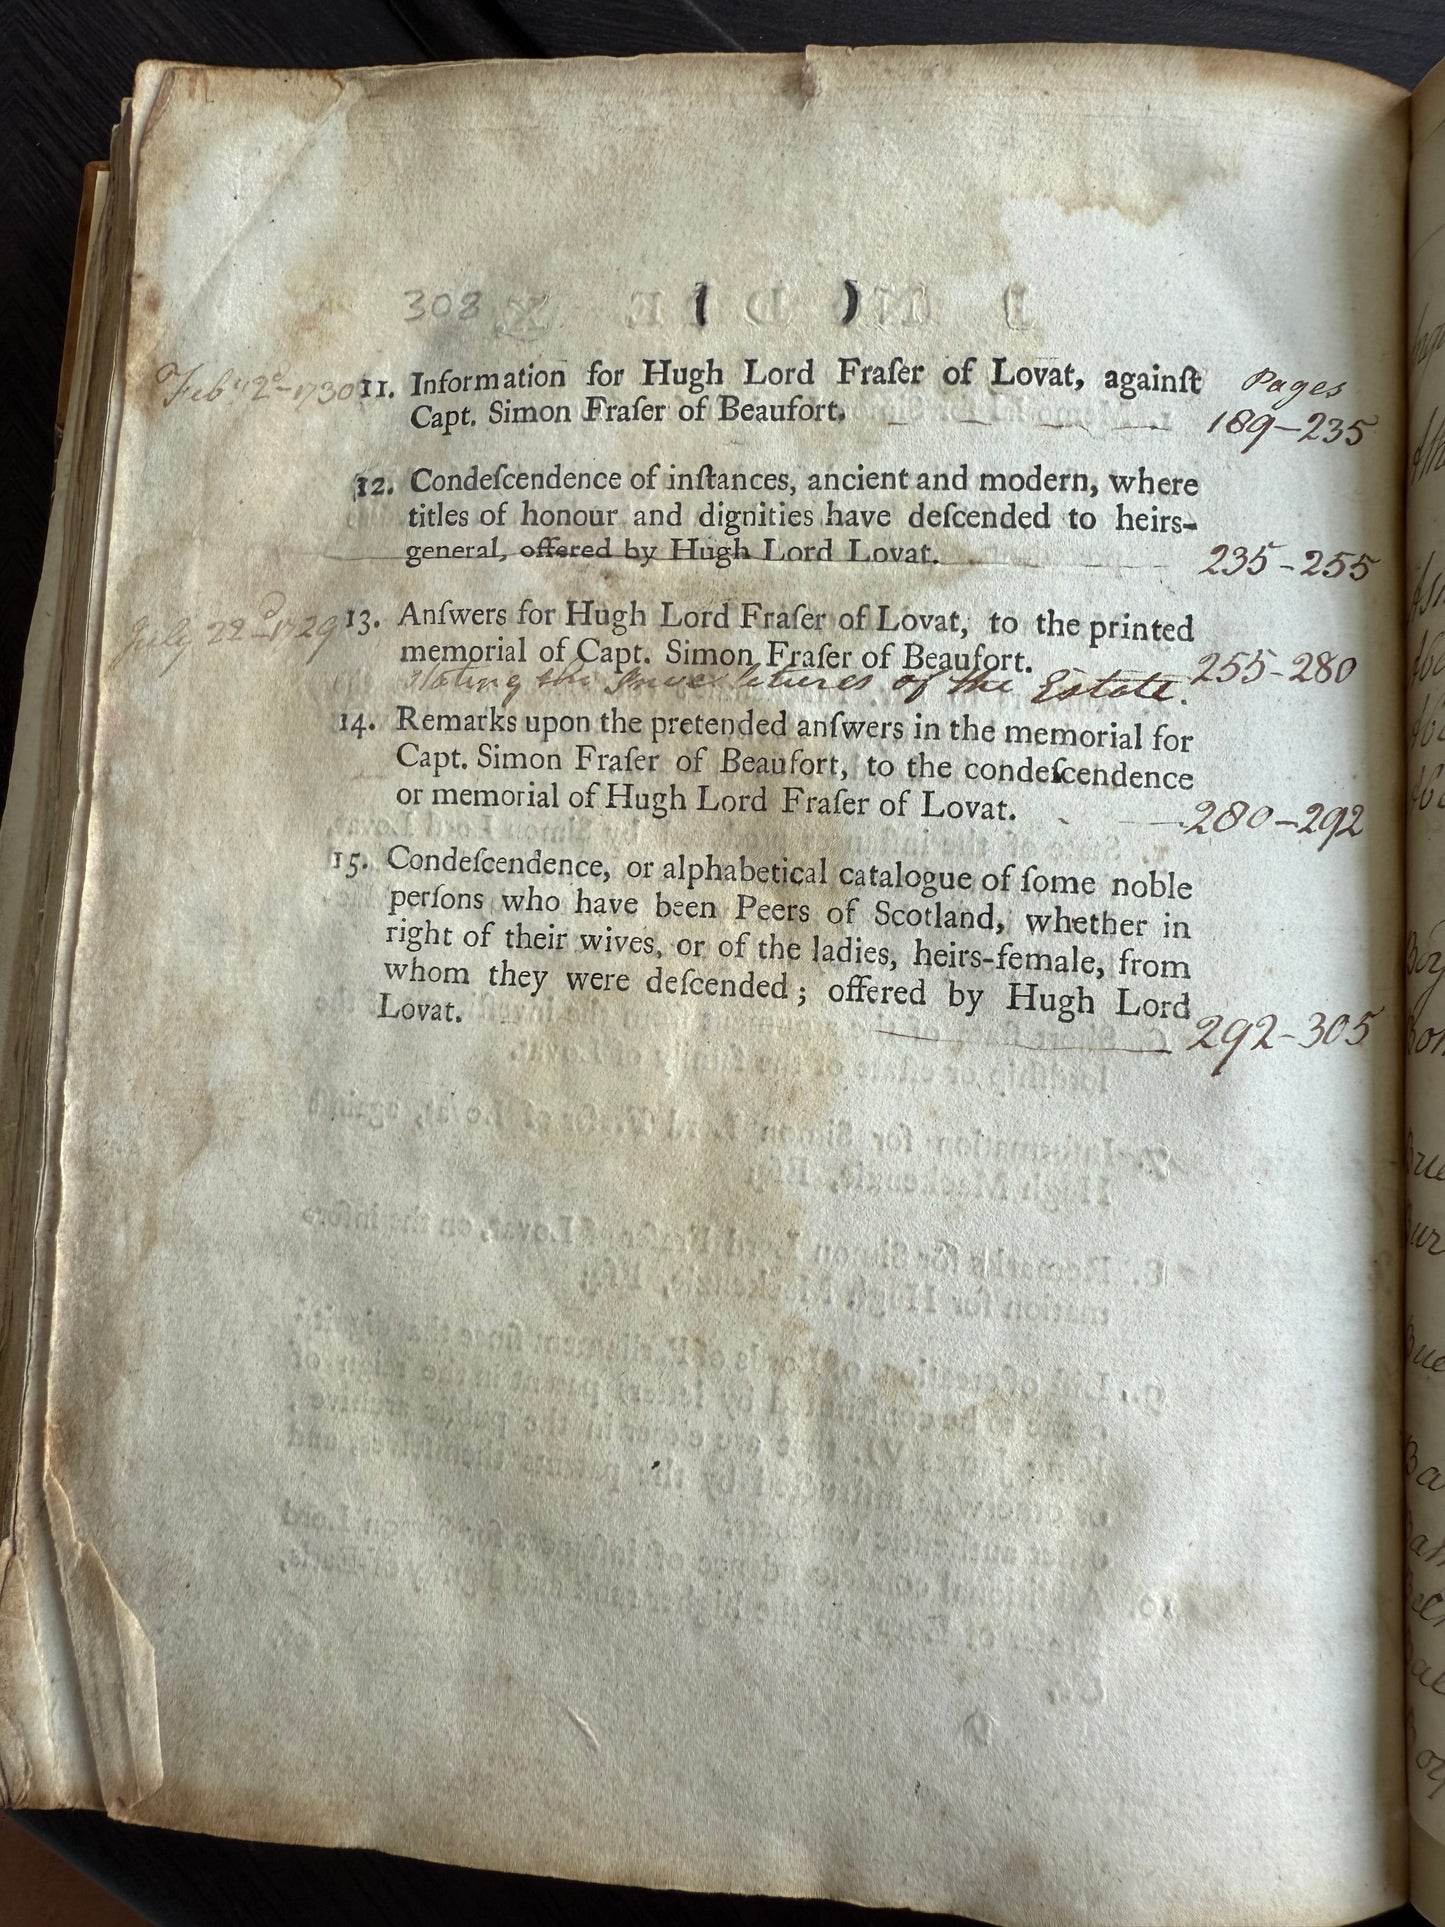 308 ( )
Feb. 2d 1730 11. Information for Hugh Lord Fraſer of Lovat, againſt Pages
Capt. Simon Fraſer of Beaufort. 189-235
12. Condeſcendence of inſtances, ancient and modern, where
titles of honour and dignities have deſcended to heirs-
general, offered by Hugh Lord Lovat. 235-255
July 22d 1729 13. Anſwers for Hugh Lord Fraſer of Lovat, to the printed
memorial of Capt. Simon Fraſer of Beaufort. 255-280
stating the Investitures of the Estate.
14. Remarks upon the pretended anſwers in the memorial for
Capt. Simon Fraſer of Beaufort, to the condeſcendence
or memorial of Hugh Lord Fraſer of Lovat. 280-292
15. Condeſcendence, or alphabetical catalogue of ſome noble
perſons who have been Peers of Scotland, whether in
right of their wives, or of the ladies, heirs-female, from
whom they were deſcended; offered by Hugh Lord
Lovat. 292-305